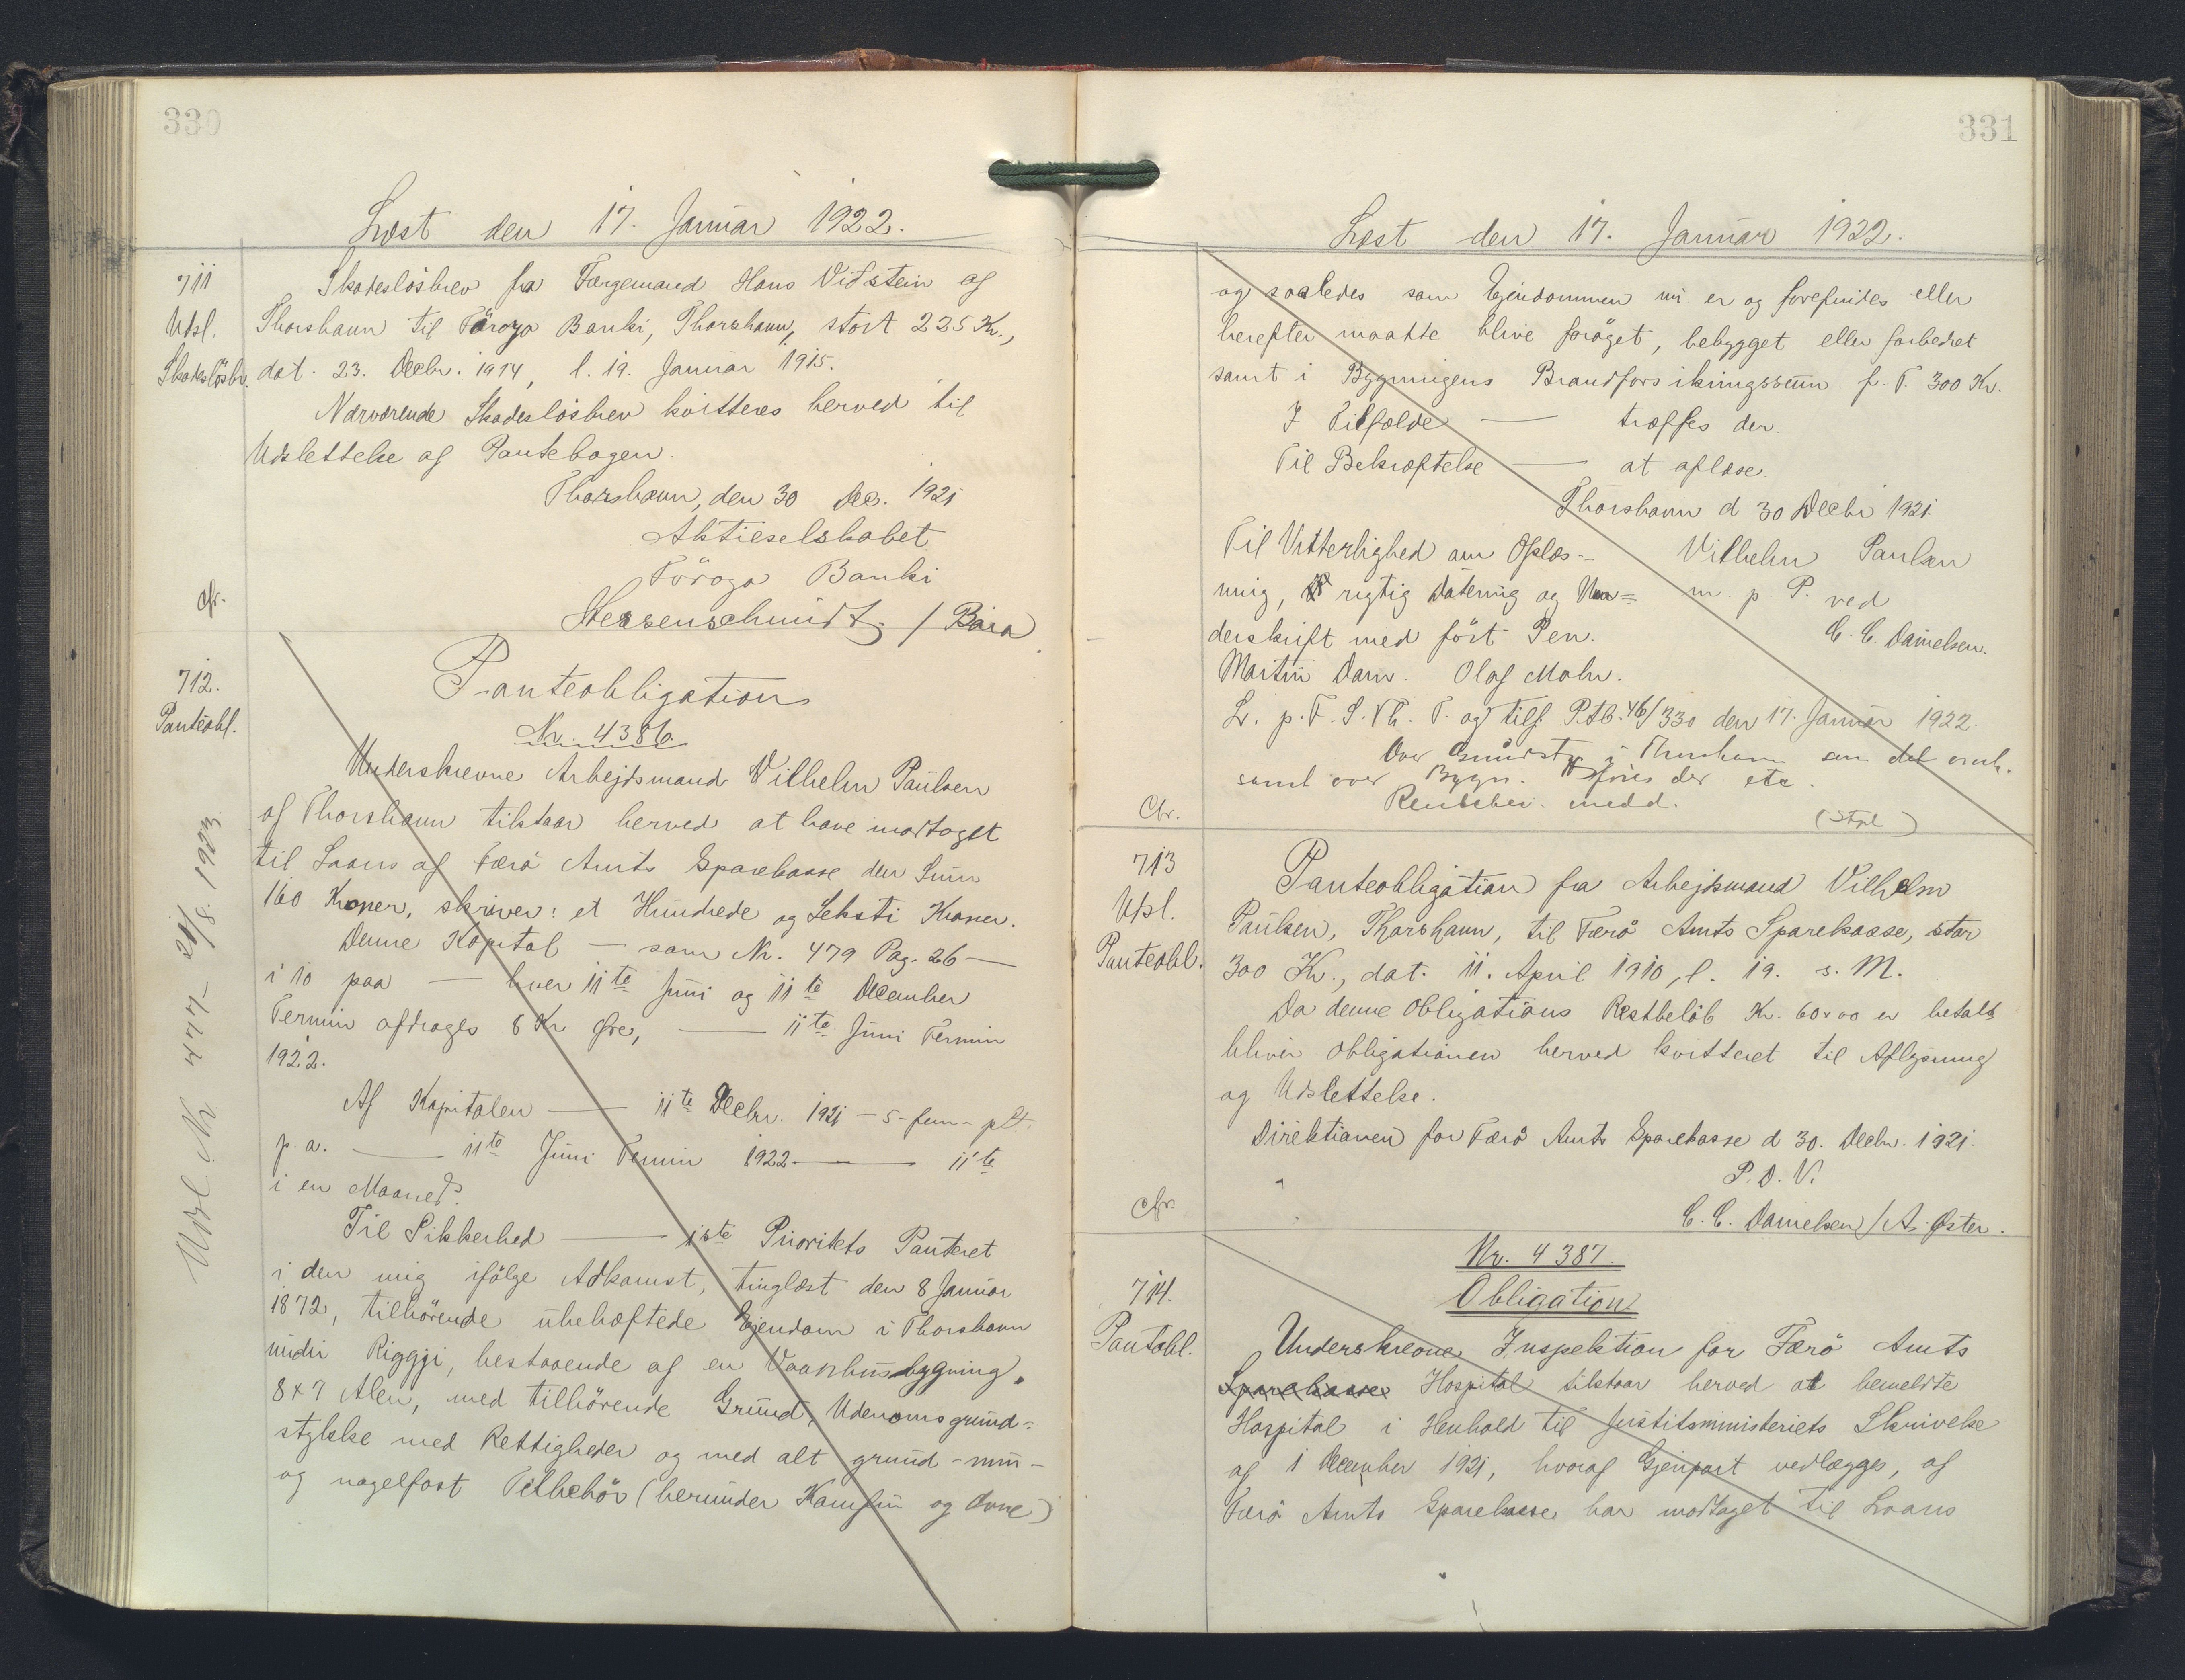 330
Læst den 17. Januar 1922.
711
Udsl.
Skadesløsbr.
Skadesløsbrev fra Færgemand Hans Vidstein af
Thorshavn til Föroya Banki, Thorshavn, stort 225 Kr.,
dat. 23. Decbr. 1914, l. 19. Januar 1915.
Nærværende Skadesløsbrev kvitteres herved til
Udslettelse af Pantebogen.
Thorshavn, den 30 Dec. 1921
Aktieselskabet
Föroya Banki
/ Baia
Cfr.
712.
Panteobl.
Udsl. Nr 477 - 21/8. 1923.
Panteobligation
Nr. 4386.
Underskrevne Arbejdsmand Vilhelm Paulsen
af Thorshavn tilstaar herved at have modtaget
til Laans af Færø Amts Sparekasse den Sum
160 Kroner, skriver: et Hundrede og Seksti Kroner.
Denne Kapital — som Nr. 479 Pag. 26 —
i 10 paa — hver 11te Juni og 11te December
Termin afdrages 8 Kr Øre, — 11te Juni Termin
1922.
Af Kapitalen — 11te Decbr. 1921 - 5 - fem - pCt.
p. a. — 11te Juni Termin 1922 — 11te
i en Maaned.
Til Sikkerhed — 1ste Prioritets Panteret
i den mig ifølge Adkomst, tinglæst den 8 Januar
1872, tilhørende ubehæftede Ejendom i Thorshavn
undir Riggji, bestaaende af en Vaanhusbygning,
8 x 7 Alen, med tilhørende Grund, Udenomsgrund-
stykke med Rettigheder og med alt grund- mur-
og nagelfast Tilbehør (herunder Komfur og Ovne)
331
Læst den 17. Januar 1922.
og saaledes som Ejendommen nu er og forefindes eller
herefter maatte blive forøget, bebygget eller forbedret
samt i Bygningens Brandforsikringssum f. T. 300 Kr.
I Tilfælde — træffes der.
Til Bekræftelse — at aflæse.
Thorshavn d 30 Decbr 1921.
Til Vitterlighed om Oplæs- Vilhelm Paulsen
ning, rigtig Datering og Un= m. p. P. ved
derskrift med ført Pen. C. C. Danielsen.
Martin Dam. Olaf Mohr.
L. p. F. S. Th. T. og tilf. P.tb. 46/330 den 17. Januar 1922.
Over Grundst i Thorshavn som det omh.
samt over Bygn. føres der etc.
Rentebev. medd.
(Stpl)
Cfr.
713
Udsl.
Panteobl.
Panteobligation fra Arbejdsmand Vilhelm
Paulsen, Thorshavn, til Færø Amts Sparekasse, stor
300 Kr., dat. 11. April 1910, l. 19. s. M.
Da denne Obligations Restbeløb Kr. 60.00 er betalt
bliver Obligationen herved kvitteret til Aflysning
og Udslettelse.
Direktionen for Færø Amts Sparekasse d 30. Decbr. 1921.
P. D. V.
C. C. Danielsen / A. Øster.
Cfr.
714.
Pantobl.
Nr. 4387.
Obligation
Underskrevne Inspektion for Færø Amts
Sparekasse Hospital tilstaar herved at bemeldte
Hospital i Henhold til Justitsministeriets Skrivelse
af 1 December 1921, hvoraf Gjenpart vedlægges, af
Færø Amts Sparekasse har modtaget til Laans